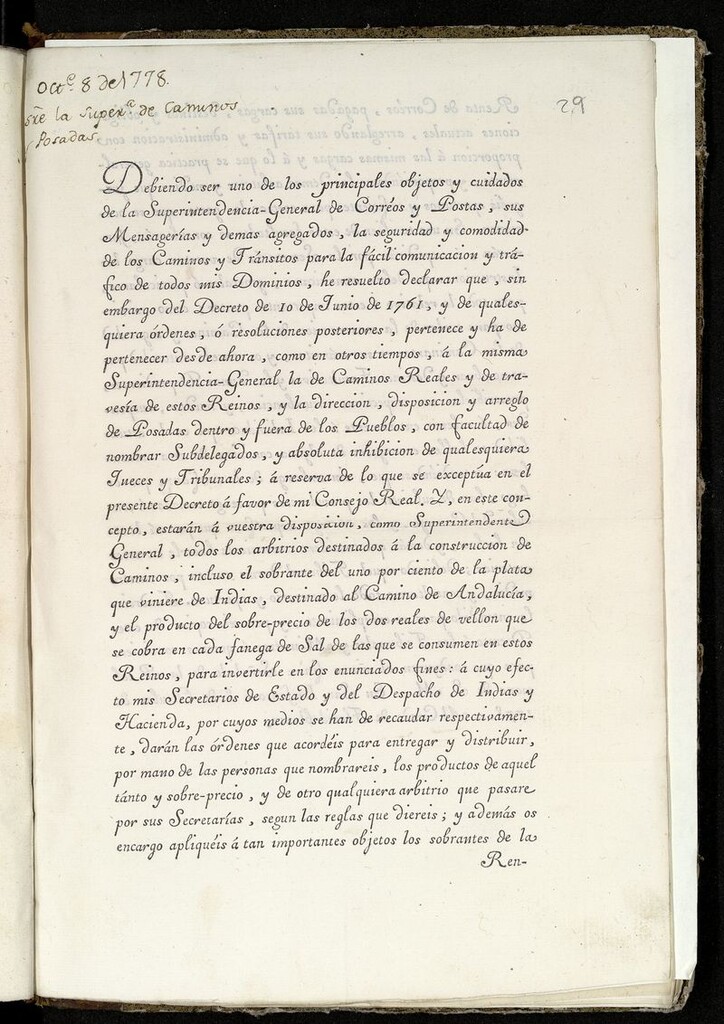 Octe. 8 de 1778.
sre la Super.a de Caminos
y Posadas
29
Debiendo ser uno de los principales objetos y cuidados
de la Superintendencia-General de Corréos y Postas, sus
Mensagerías y demas agregados, la seguridad y comodidad
de los Caminos y Tránsitos para la fácil comunicacion y trá-
fico de todos mis Dominios, he resuelto declarar que, sin
embargo del Decreto de 10 de Junio de 1761, y de quales-
quiera órdenes, ó resoluciones posteriores, pertenece y ha de
pertenecer desde ahora, como en otros tiempos, á la misma
Superintendencia-General la de Caminos Reales y de tra-
vesía de estos Reinos, y la direccion, disposicion y arreglo
de Posadas dentro y fuera de los Pueblos, con facultad de
nombrar Subdelegados, y absoluta inhibicion de qualesquiera
Jueces y Tribunales; á reserva de lo que se exceptúa en el
presente Decreto á favor de mi Consejo Real. Y, en este con-
cepto, estarán á vuestra disposicion, como Superintendente
General, todos los arbitrios destinados á la construccion de
Caminos, incluso el sobrante del uno por ciento de la plata
que viniere de Indias, destinado al Camino de Andalucía,
y el producto del sobre-precio de los dos reales de vellon que
se cobra en cada fanega de Sal de las que se consumen en estos
Reinos, para invertirle en los enunciados fines: á cuyo efec-
to mis Secretarios de Estado y del Despacho de Indias y
Hacienda, por cuyos medios se han de recaudar respectivamen-
te, darán las órdenes que acordéis para entregar y distribuir,
por mano de las personas que nombrareis, los productos de aquel
tánto y sobre-precio, y de otro qualquiera arbitrio que pasare
por sus Secretarías, segun las reglas que diereis; y además os
encargo apliquéis á tan importantes objetos los sobrantes de la
Ren-